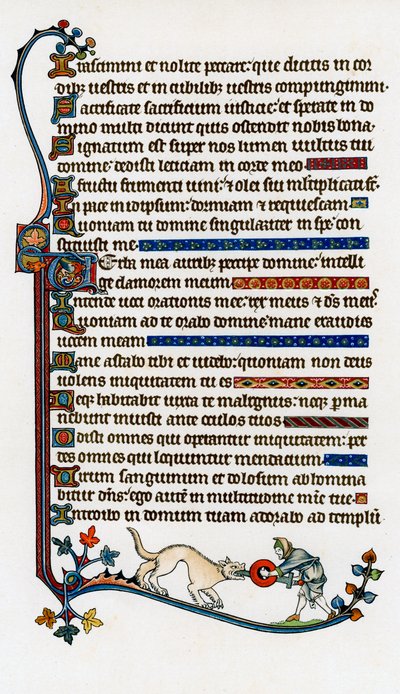 Irascimini et nolite peccare: que dicitis in cor
dibz uestris et in cubilibz uestris compungimini.
Sacrificate sacrificium iusticie: et sperate in do
mino multi dicunt quis ostendit nobis bona.
Signatum est super nos lumen uultus tui
domine: dedisti leticiam in corde meo.
A fructu frumenti uini: & olei sui multiplicati st.
In pace in idipsum: dormiam & requiescam.
Quoniam tu domine singulariter in spe: con
stituisti me.
Verba mea auribz percipe domine: intelli
ge clamorem meum.
Intende uoci orationis mee: rex meus & ds meus.
Quoniam ad te orabo domine: mane exaudies
uocem meam.
Mane astabo tibi et uidebo: quoniam non deus
uolens iniquitatem tu es.
Neqz habitabit iuxta te malignus: neqz perma
nebunt iniusti ante oculos tuos.
Odisti omnes qui operantur iniquitatem: per
des omnes qui loquuntur mendacium.
Uirum sanguinum et dolosum abhomina
bitur dns: ego autem in multitudine mie tue.
Introibo in domum tuam adorabo ad templum